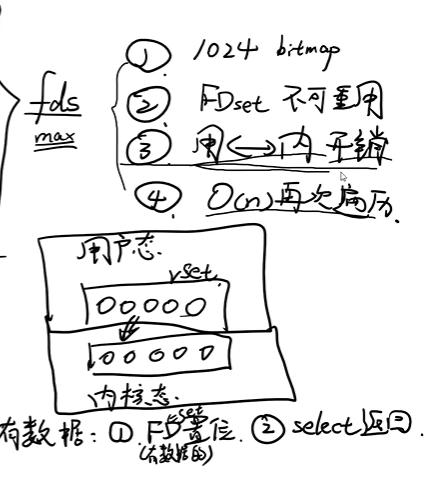 fds
max
① 1024 bitmap
② FDset 不可重用
③ 用↔内 开销
④ O(n)再次遍历.
用户态.
rset
00000
00000
内核态.
有数据: ① FDset置位. ② select返回.
(有数据的)